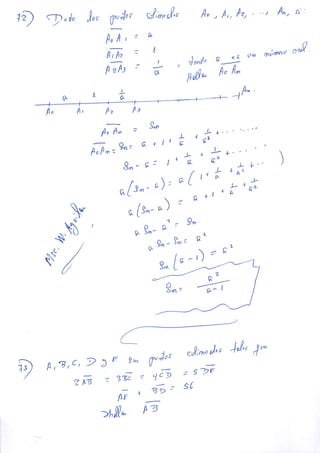 72) Dado los puntos colineales A₀, A₁, A₂, ..., Aₙ, si:
A₀A₁ = a
A₁A₂ = 1
A₂A₃ = 1/a , donde a es un número real.
Hallar A₀Aₙ
a 1 1/a
A₀ A₁ A₂ A₃ Aₙ
A₀Aₙ = Sₙ
A₀Aₙ = Sₙ = a + 1 + 1/a + 1/a² + ......
Sₙ - a = 1 + 1/a + 1/a² + ......
a(Sₙ - a) = a(1 + 1/a + 1/a² + ...)
a(Sₙ - a) = a + 1 + 1/a + 1/a²
a Sₙ - a² = Sₙ
a Sₙ - Sₙ = a²
Sₙ(a - 1) = a²
Sₙ = a²/(a - 1)
73) A, B, C, D y E son puntos colineales tales que
2AB = 3BC = 4CD = 5DE
AE + BD = 56
Hallar AB